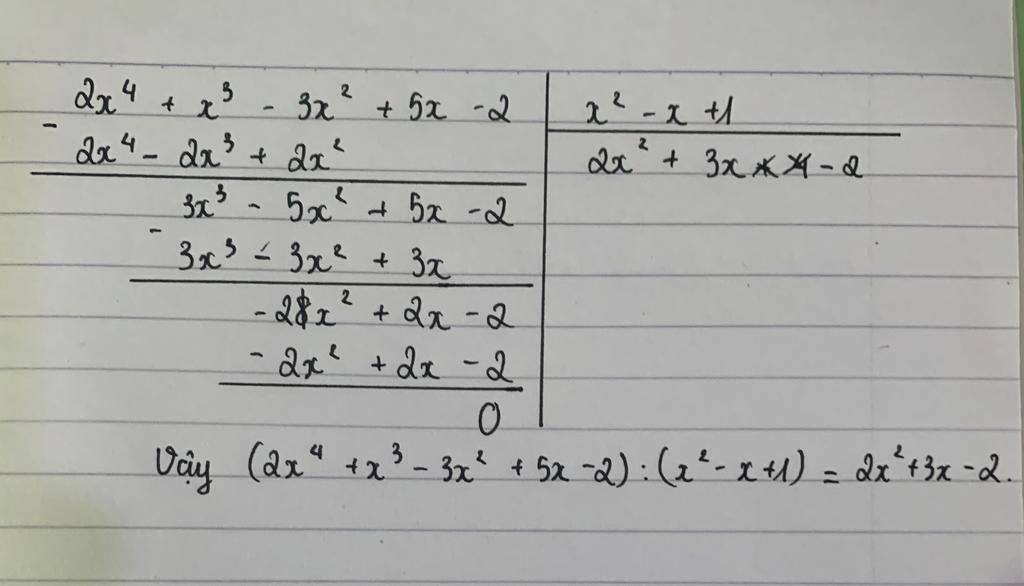 2x⁴ + x³ - 3x² + 5x - 2 | x² - x + 1
- 2x⁴ - 2x³ + 2x² | 2x² + 3x - 2
3x³ - 5x² + 5x - 2
- 3x³ - 3x² + 3x
- 2x² + 2x - 2
- 2x² + 2x - 2
0
Vậy (2x⁴ + x³ - 3x² + 5x - 2) : (x² - x + 1) = 2x² + 3x - 2.